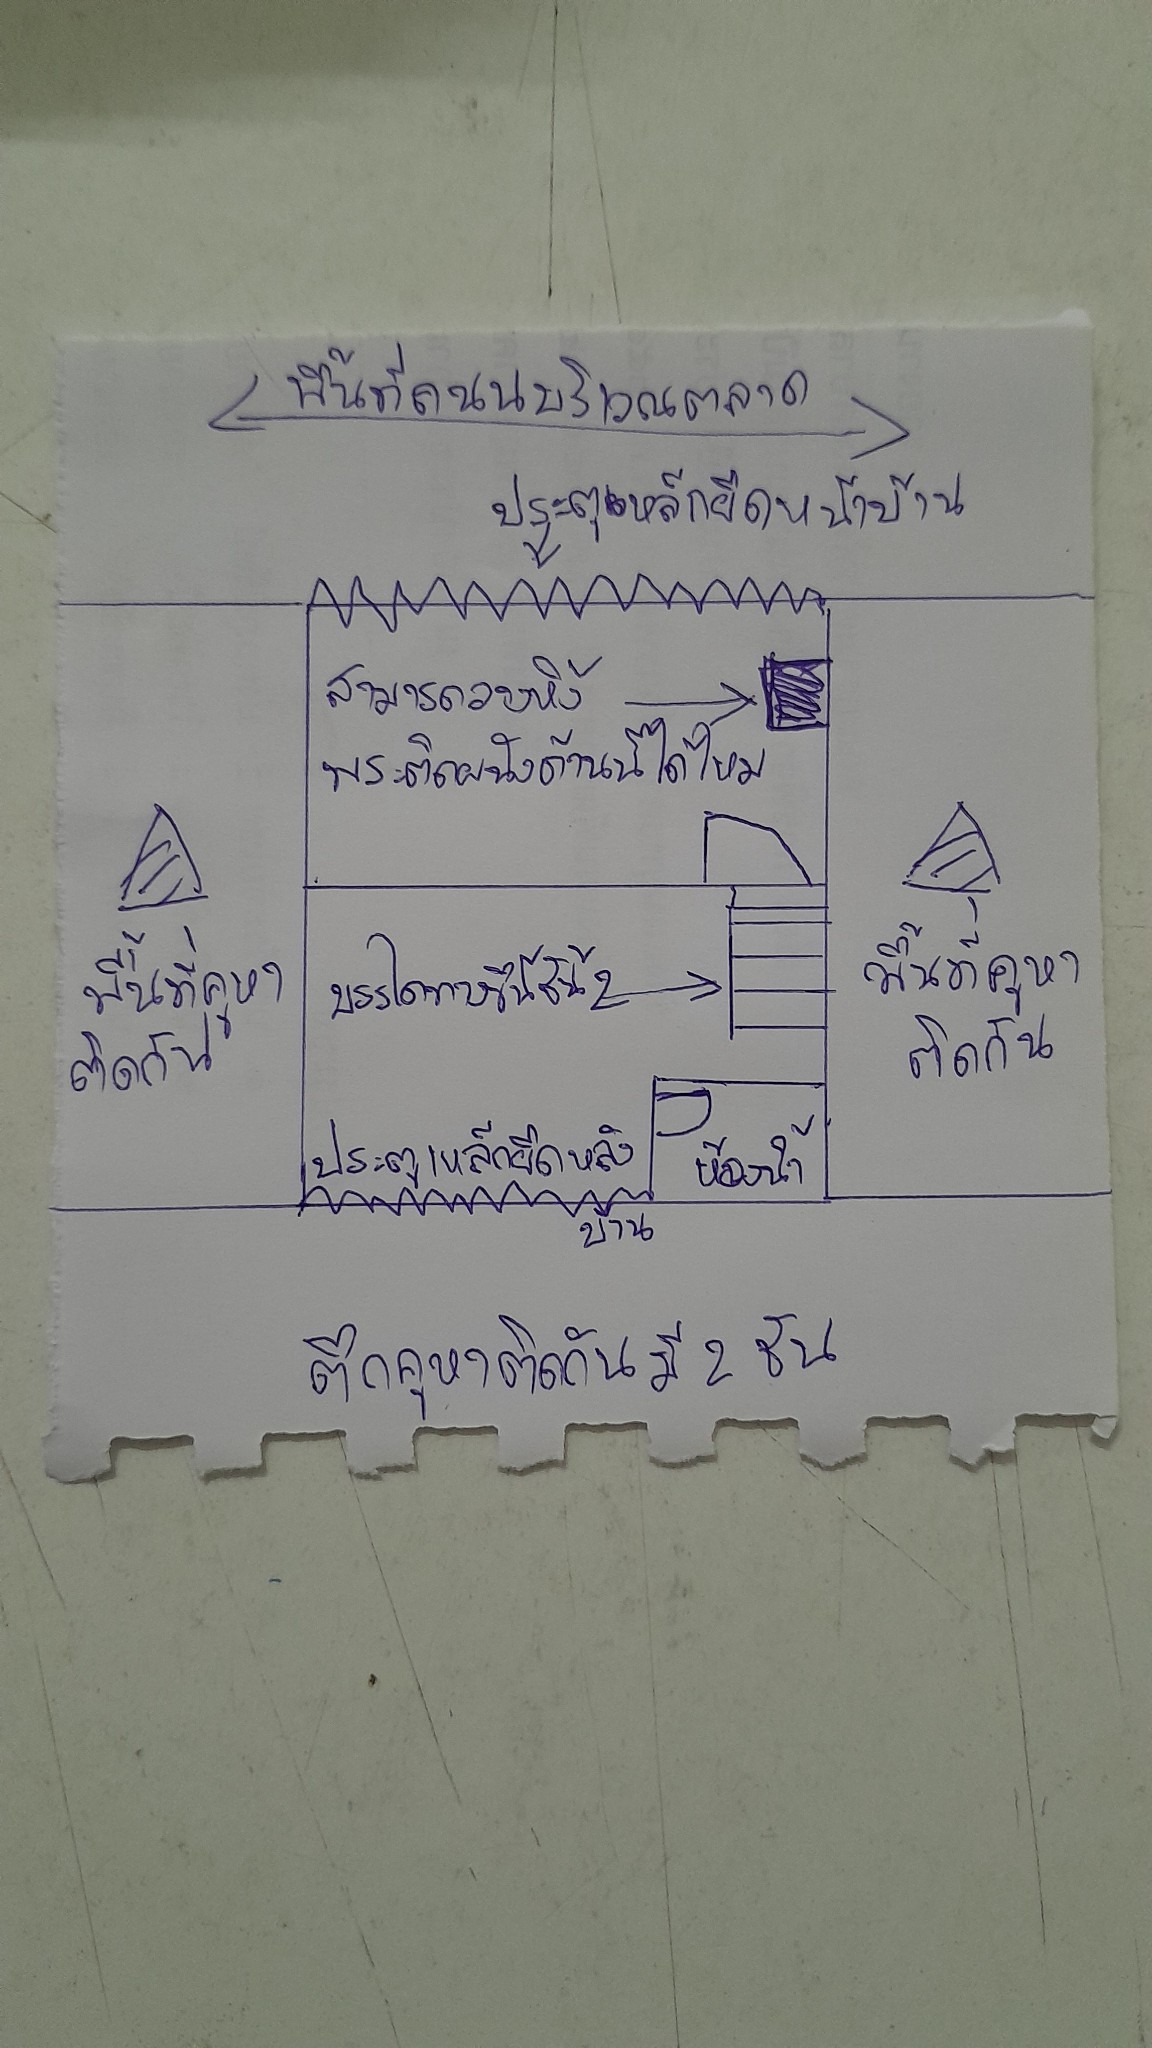 พื้นที่ถนนบริเวณตลาด
ประตูเหล็กยืดหน้าบ้าน
สามารถวางหิ้ง
พระติดผนังด้านนี้ได้ไหม
พื้นที่คูหา
ติดกัน
บรรไดทางขึ้นชั้น 2
พื้นที่คูหา
ติดกัน
ประตูเหล็กยืดหลัง
บ้าน
ห้องน้ำ
ตึกคูหาติดกันมี 2 ชั้น